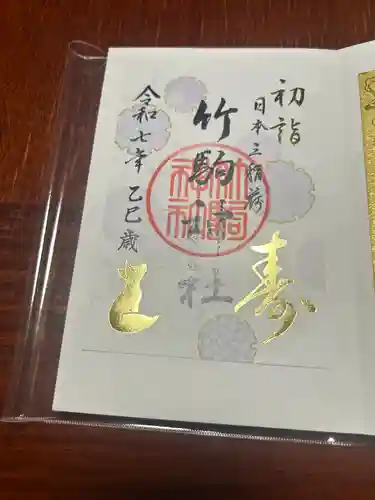 初詣
日本三稲荷
竹駒神社
寿
令和七年 乙巳歳
竹駒神社